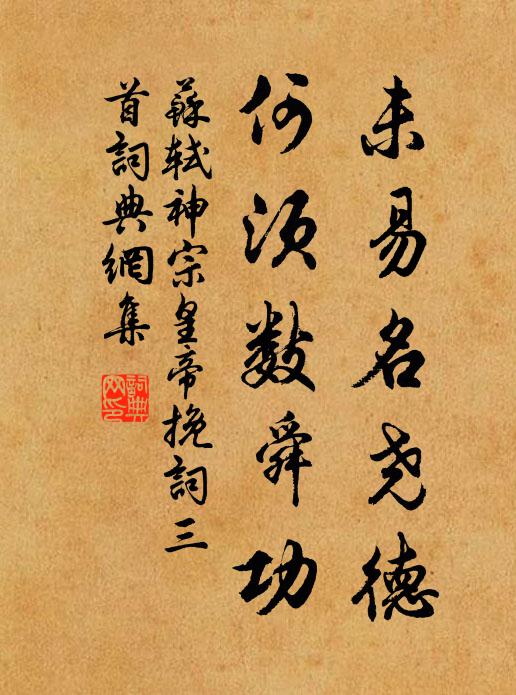 未易名尧德
何须数舜功
蘇軾神宗皇帝挽詞三
首詞典網集
詞典
网印